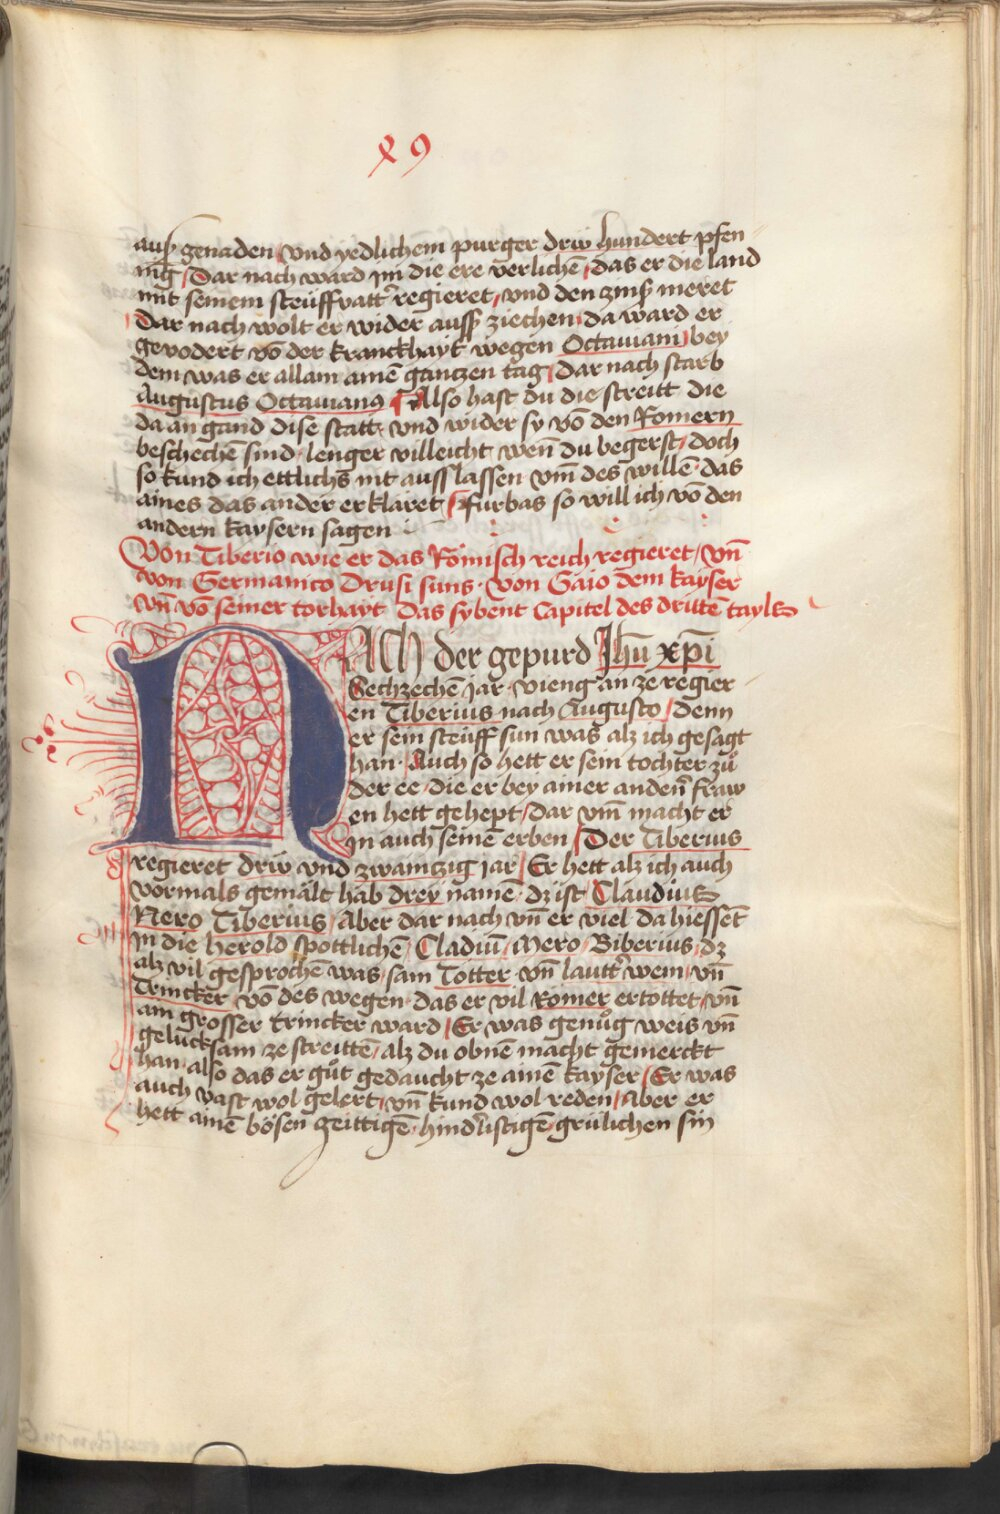 89
auß genaden / vnd yedlichem purger driw hundert pfen
ning / Dar nach ward im die ere verlichē / das er die land
mit seinem steüffvattr̄ regieret / vnd den zinß meret
/ Dar nach wolt er wider auss ziechen / da ward er
gevodert vō der kranckhayt wegen Octauiani / bey
dem was er allain ainē gantzen tag / Dar nach starb
Augustus Octauianꝰ ¶ Also hast du die streitt die
da an gand dise statt / vnd wider sy vō den Romern
beschechē sind / lenger villeicht / wen̄ du begerst / doch
so kund ich ettlichs nit auss lassen / vm̄ des willē / das
aines das ander erklaret / Furbas so will ich vō den
andern kaysern sagen
Von Tiberio wie er das Römisch reich regieret / vn̄
von Germanico Drusi suns · von Gaio dem kayser
vn̄ vō seiner torhayt Das sybent Capitel des drittē tayls
NAch der gepurd Jhū xp̄i
Sechzechē jar · vieng an ze regier
en Tiberius nach Augusto / denn
er sein steüff sun was alz ich gesagt
han · Auch so hett er sein tochter zů
der ee · die er bey ainer andern̄ fraw
en hett gehept / Dar vm̄ macht er
in auch seinē erben / Der Tiberius
regieret driw vnd zwaintzig jar / Er hett alz ich auch
vormals gemält hab drey namē · dz ist / Claudius
Nero Tiberius / Aber dar nach vn̄ er viel da hiessēt
in die herold spottlichē / Cladiū / Mero / Biberius · dz
alz vil gesprochē was / sam Totter vn̄ lauttr̄ wein / vn̄
Trincker vō des wegen · das er vil Römer ertottet / vn̄
ain grosser trincker ward / Er was genůg weis vn̄
gelucksam ze streittē / alz du obnē macht gemerckt
han · also das er gůt gedaucht ze ainē kayser / Er was
auch vast wol gelert / vn̄ kund wol reden / Aber er
hett ainē bösen zeittigē / hindr̄listigē grülichen sin